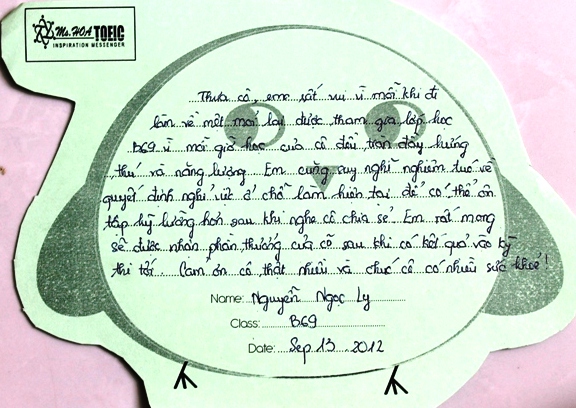 Ms. HOA TOEIC
INSPIRATION MESSENGER
Thưa cô, em rất vui vì mỗi khi đi
làm về mệt mỏi lại được tham gia lớp học
B69 vì mỗi giờ học của cô đều tràn đầy hứng
thú và năng lượng. Em cũng suy nghĩ nghiêm túc về
quyết định nghỉ việc ở chỗ làm hiện tại để có thể ôn
tập kỹ lưỡng hơn sau khi nghe cô chia sẻ. Em rất mong
sẽ được nhận phần thưởng của cô sau khi có kết quả vào kỳ
thi tới. Cảm ơn cô thật nhiều và chúc cô có nhiều sức khoẻ!
Name: Nguyễn Ngọc Ly
Class: B69
Date: Sep 13 2012